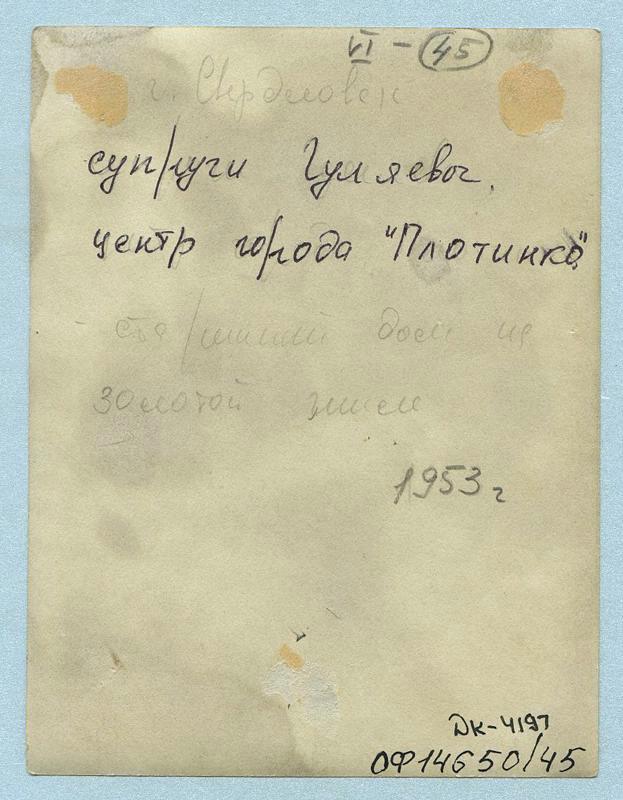 VI - 45
г. Свердловск
супруги Гуляевы,
центр города "Плотинка"
дом на
золотой
1953 г
ДК-4197
ОФ14650/45